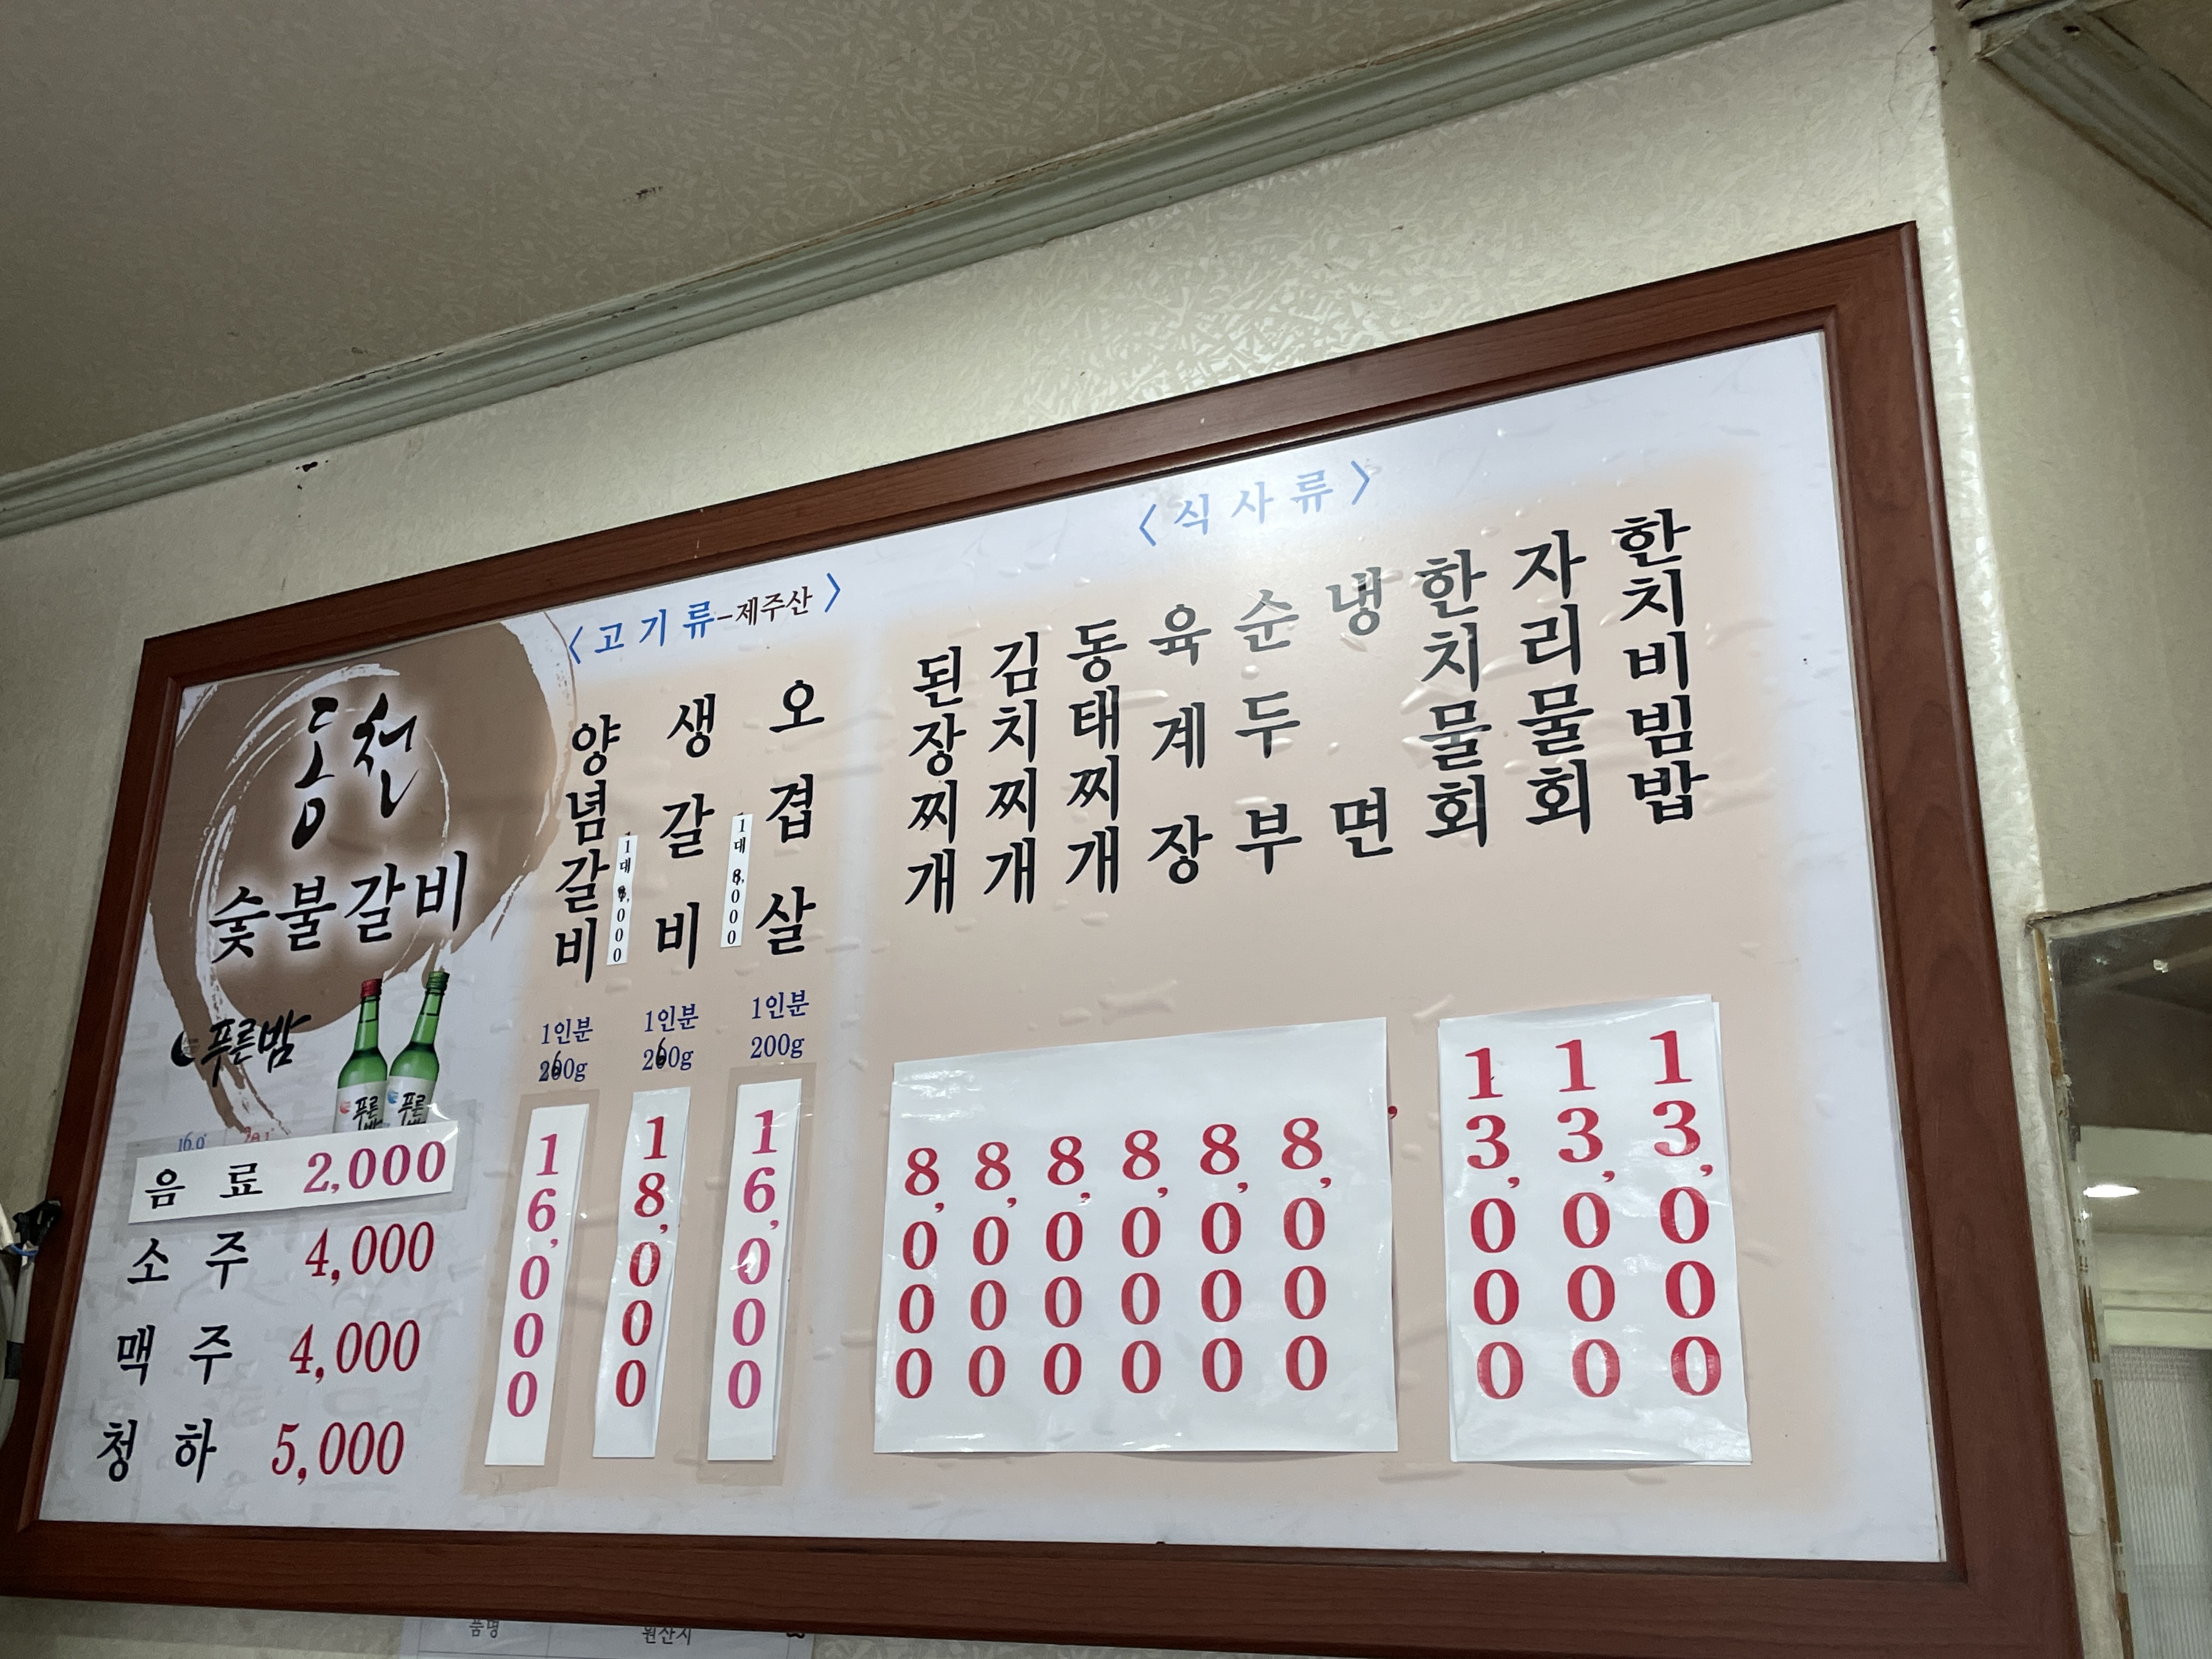 동천
숯불갈비
푸른밤
푸른
푸른
16.9°
20.1°
음 료 2,000
소 주 4,000
맥 주 4,000
청 하 5,000
〈고기류-제주산〉
양념갈비
1인분
260g
16,000
생갈비
1인분
260g
18,000
1대 8,000
오겹살
1인분
200g
16,000
〈식사류〉
된장찌개 8,000
김치찌개 8,000
동태찌개 8,000
육계장 8,000
순두부 8,000
냉면 8,000
한치물회 13,000
자리물회 13,000
한치비빔밥 13,000
품명
원산지